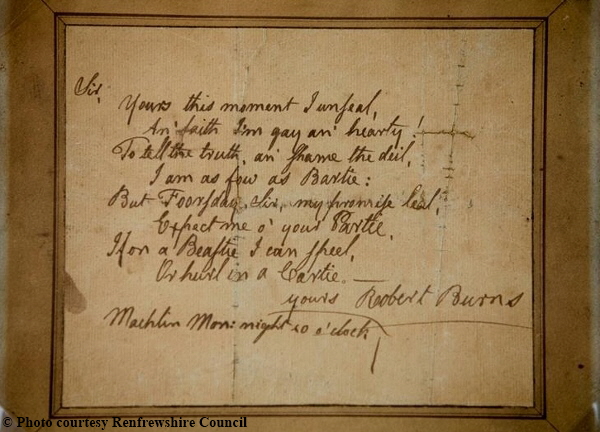 Sir,
Yours this moment I unseal,
An' faith I'm gay an' hearty!—
To tell the truth, an' shame the deil,
I am as fow as Bartie:
But Foorsday, Sir, my promise leal,
Expect me o' your Partie,
If on a Beastie I can speel,
Or hurl in a Cartie.—
yours Robert Burns
Machlin Mon: night 10 o'clock
© Photo courtesy Renfrewshire Council